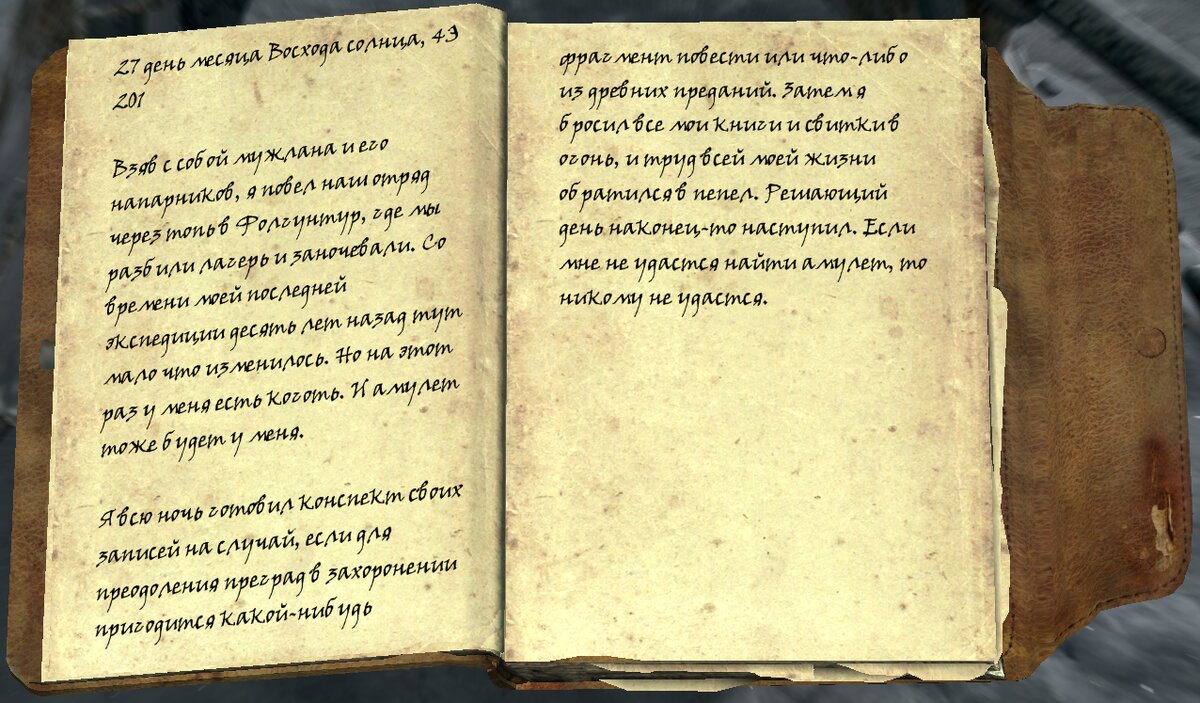 27 день месяца Восхода солнца, 4Э
201
Взяв с собой мужлана и его
напарников, я повел наш отряд
через топь в Фолгунтур, где мы
разбили лагерь и заночевали. Со
времени моей последней
экспедиции десять лет назад тут
мало что изменилось. Но на этот
раз у меня есть коготь. И амулет
тоже будет у меня.
Я всю ночь готовил конспект своих
записей на случай, если для
преодоления преград в захоронении
пригодится какой-нибудь
фрагмент повести или что-либо
из древних преданий. Затем я
бросил все мои книги и свитки в
огонь, и труд всей моей жизни
обратился в пепел. Решающий
день наконец-то наступил. Если
мне не удастся найти амулет, то
никому не удастся.